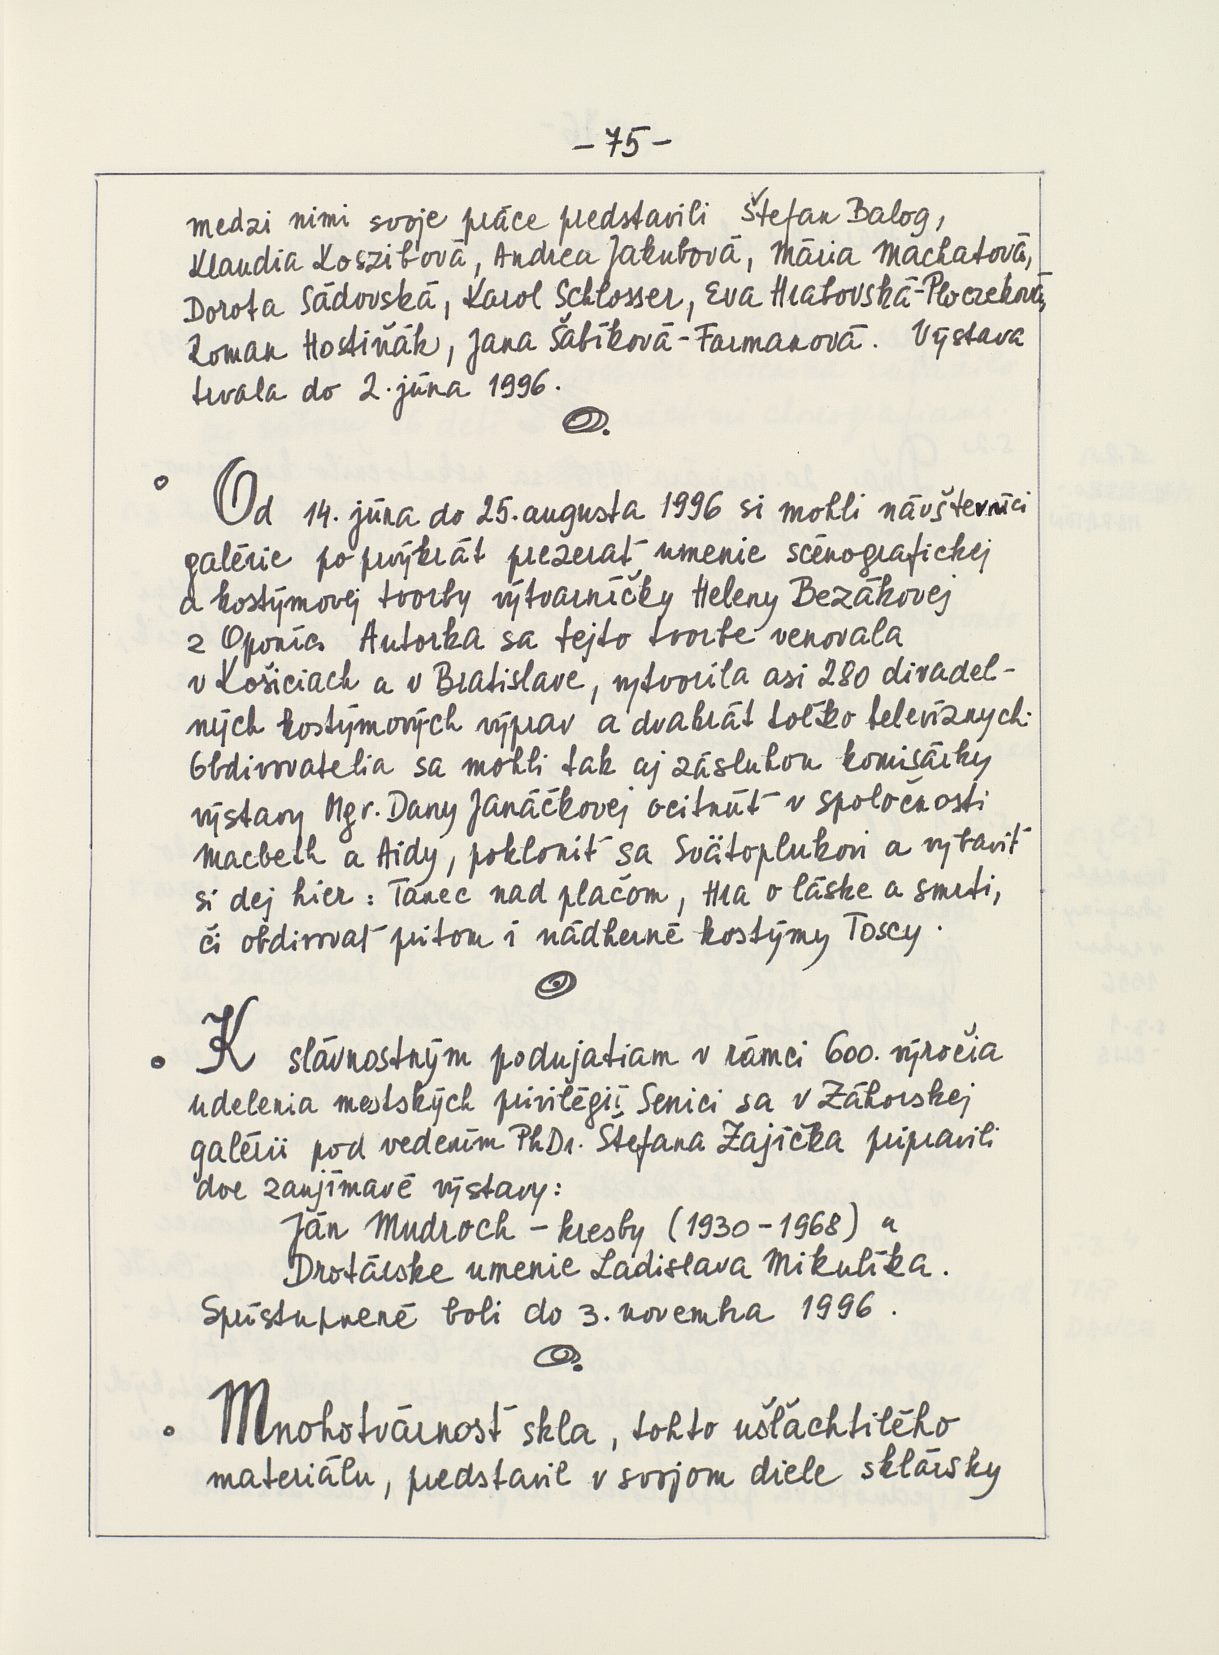 - 75 -
medzi nimi svoje práce predstavili Štefan Balog,
Klaudia Koszibová, Andrea Jakubová, Mária Machatová,
Dorota Sádovská, Karol Schlosser, Eva Hrabovská-Ploczeková,
Roman Hostiňák, Jana Šabíková-Farmanová. Výstava
trvala do 2. júna 1996.
Od 14. júna do 25. augusta 1996 si mohli návštevníci
galérie po prvýkrát prezerať umenie scénografickej
a kostýmovej tvorby výtvarníčky Heleny Bezákovej
z Oponíc. Autorka sa tejto tvorbe venovala
v Košiciach a v Bratislave, vytvorila asi 280 divadel-
ných kostýmových výprav a dvakrát toľko televíznych.
Obdivovatelia sa mohli tak aj zásluhou komisárky
výstavy Mgr. Dany Janáčkovej ocitnúť v spoločnosti
Macbeth a Aidy, pokloniť sa Svätoplukovi a vybaviť
si dej hier: Tanec nad plačom, Hra o láske a smrti,
či obdivovať pritom i nádherné kostýmy Toscy.
K slávnostným podujatiam v rámci 600. výročia
udelenia mestských privilégií Senici sa v Záhorskej
galérii pod vedením PhDr. Štefana Zajíčka pripravili
dve zaujímavé výstavy:
Ján Mudroch - kresby (1930-1968) a
Drotárske umenie Ladislava Mikulíka.
Sprístupnené boli do 3. novembra 1996.
Mnohotvárnosť skla, tohto ušľachtilého
materiálu, predstavil v svojom diele sklársky